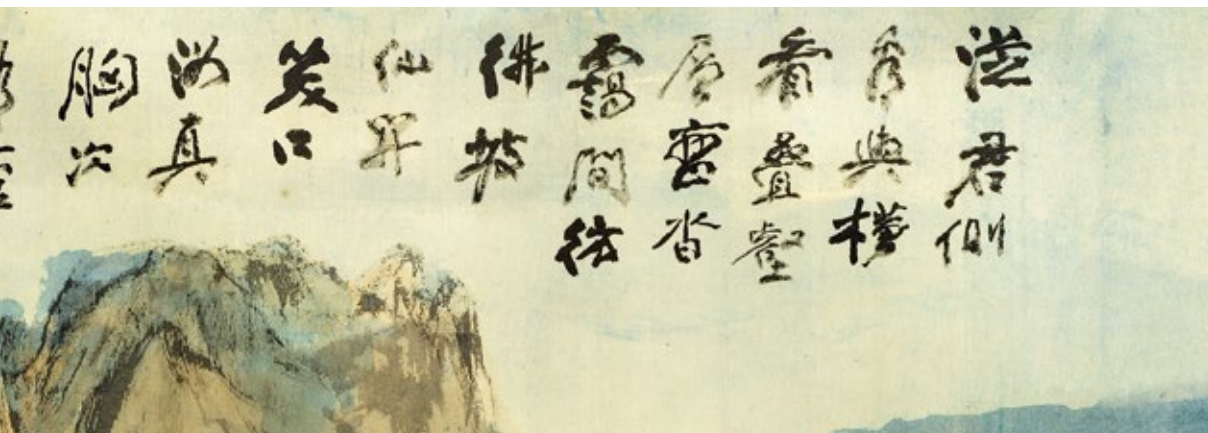 從君側
看與橫
看疊壑
層巒杳
靄間彷
彿坡
仙開
笑口
汝真
胸次